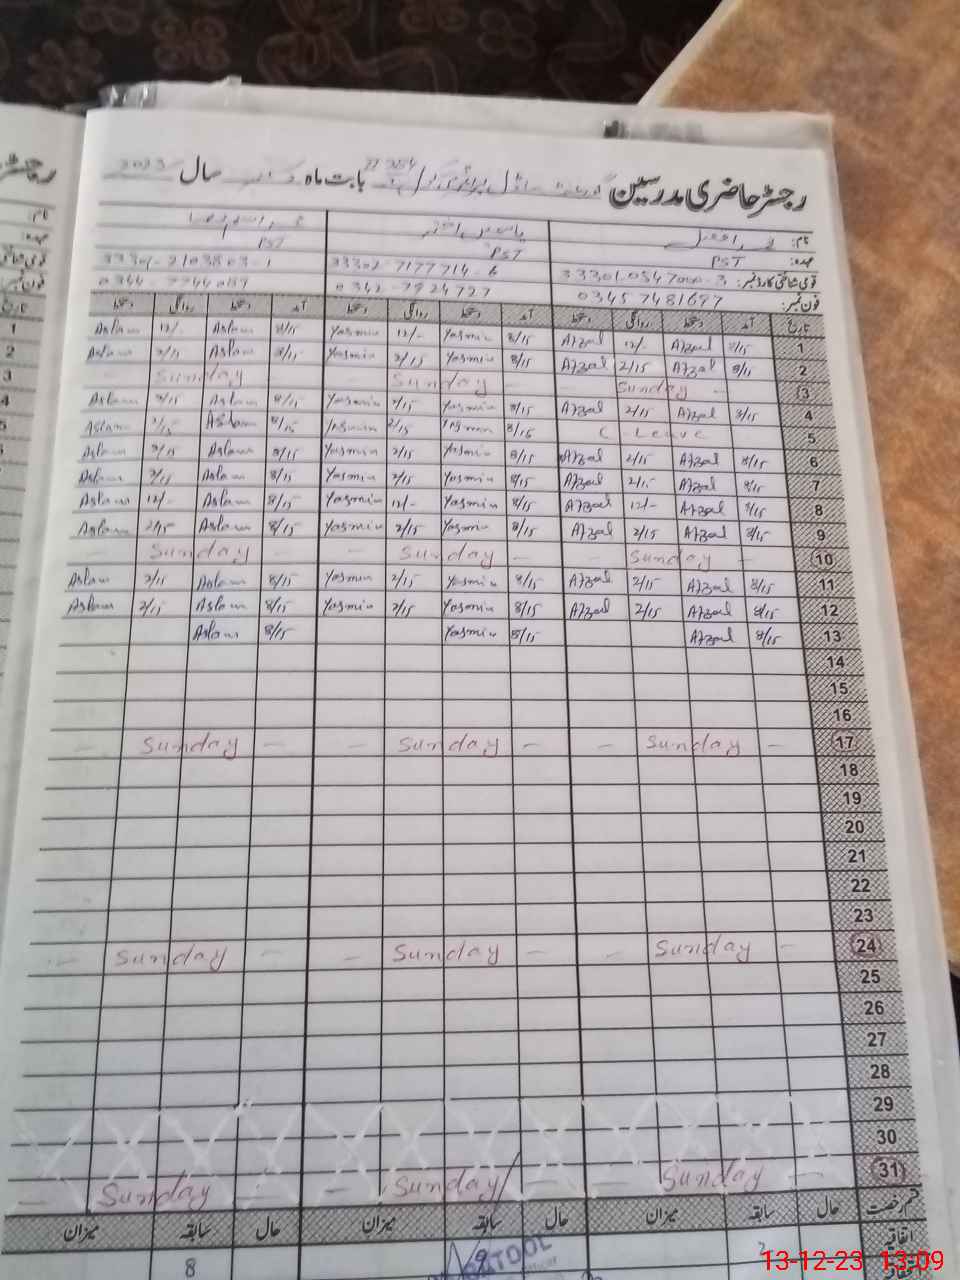 رجسٹر حاضری مدرسین بابت ماہ سال 2023
نام: محمد افضل یاسمین اختر
عہدہ: PST PST PST
قومی شناختی کارڈ نمبر: 33302-7177714-6 33301-2103803-1
فون نمبر: 03457481697 0342-7924727
تاریخ آمد دستخط روانگی دستخط آمد دستخط روانگی دستخط آمد دستخط روانگی دستخط
1 8/15 Afzal 12/- Afzal 8/15 Yasmin 12/- Yasmin 8/15 Aslam 12/- Aslam
2 8/15 Afzal 2/15 Afzal 8/15 Yasmin 2/15 Yasmin 8/15 Aslam 2/15 Aslam
3 Sunday Sunday Sunday
4 8/15 Afzal 2/15 Afzal 8/15 Yasmin 2/15 Yasmin 8/15 Aslam 2/15 Aslam
5 C Leave 8/15 Yasmin 2/15 Yasmin 8/15 Aslam 2/15 Aslam
6 8/15 Afzal 2/15 Afzal 8/15 Yasmin 2/15 Yasmin 8/15 Aslam 2/15 Aslam
7 8/15 Afzal 2/15 Afzal 8/15 Yasmin 2/15 Yasmin 8/15 Aslam 2/15 Aslam
8 8/15 Afzal 12/- Afzal 8/15 Yasmin 12/- Yasmin 8/15 Aslam 12/- Aslam
9 8/15 Afzal 2/15 Afzal 8/15 Yasmin 2/15 Yasmin 8/15 Aslam 2/15 Aslam
10 Sunday Sunday Sunday
11 8/15 Afzal 2/15 Afzal 8/15 Yasmin 2/15 Yasmin 8/15 Aslam 2/15 Aslam
12 8/15 Afzal 2/15 Afzal 8/15 Yasmin 2/15 Yasmin 8/15 Aslam 2/15 Aslam
13 8/15 Afzal 8/15 Yasmin 8/15 Aslam
14
15
16
17 Sunday Sunday Sunday
18
19
20
21
22
23
24 Sunday Sunday Sunday
25
26
27
28
29
30
31 Sunday Sunday Sunday
قسم رخصت حال سابقہ میزان حال سابقہ میزان حال سابقہ میزان
اتفاقیہ 2 8
13-12-23 13:09